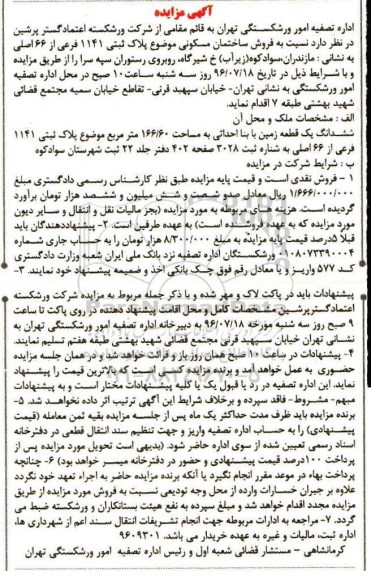 آگهی مزایده
اداره تصفیه امور ورشکستگی تهران به قائم مقامی از شرکت ورشکسته اعتمادگستر پرشین
در نظر دارد نسبت به فروش ساختمان مسکونی موضوع پلاک ثبتی ۱۱۴۱ فرعی از ۶۶ اصلی
به نشانی : مازندران،سوادکوه(زیرآب) خ شیرگاه، روبروی رستوران سپه سرا را از طریق مزایده
و با شرایط ذیل در تاریخ ۹۶/۰۷/۱۸ روز سه شنبه ساعت۱۰ صبح در محل اداره تصفیه
امور ورشکستگی به نشانی تهران- خیابان سپهبد قرنی- تقاطع خیابان سمیه مجتمع قضائی
شهید بهشتی طبقه ۷ اقدام نماید.
الف : مشخصات ملک و محل آن
ششدانگ یک قطعه زمین با بنا احداثی به مساحت ۱۶۶/۶۰ متر مربع موضوع پلاک ثبتی ۱۱۴۱
فرعی از ۶۶ اصلی به شماره ثبت ۳۰۲۸ صفحه ۴۰۲ دفتر جلد ۲۲ ثبت شهرستان سوادکوه
ب : شرایط شرکت در مزایده
۱ - فروش نقدی است و قیمت پایه مزایده طبق نظر کارشناس رسمی دادگستری مبلغ
۱/۶۶۶/۰۰۰/۰۰۰ ریال معادل صدو شصت و شش میلیون و ششصد هزار تومان برآورد
گردیده است. هزینه های مربوطه به مورد مزایده (بجز مالیات نقل و انتقال و سایر دیون
مورد مزایده که به عهده فروشنده است) به عهده طرفین است. ۲- پیشنهاددهندگان باید
قبلا ۵درصد قیمت پایه مزایده به مبلغ ۸/۳۰۰/۰۰۰ هزار تومان را به حساب جاری شماره
ورشکستگان اداره تصفیه نزد بانک ملی ایران شعبه وزارت دادگستری
کد ۵۷۷ واریز و یا معادل رقم فوق چک بانکی اخذ و ضمیمه پیشنهاد خود نمایند. ۳-
پیشنهادات باید در پاکت لاک و مهر شده و با ذکر جمله مربوط به مزایده شرکت ورشکسته
اعتمادگسترپرشین مشخصات کامل و محل اقامت پیشنهاد دهنده در روی پاکت تا ساعت
۹ صبح روز سه شنبه مورخه ۹۶/۰۷/۱۸ به دبیرخانه اداره تصفیه امور ورشکستگی تهران به
نشانی تهران خیابان سپهبد قرنی مجتمع قضائی شهید بهشتی طبقه هفتم تسلیم نمایند.
۴- پیشنهادات در ساعت ۱۰ صبح همان روز باز و قرائت خواهد شد و در همان جلسه مزایده
حضوری به عمل خواهد آمد و برنده مزایده کسی است که بالاترین قیمت را پیشنهاد
نماید، این اداره تصفیه در رد یا قبول یک یا کلیه پیشنهادات مختار است و به پیشنهادات
مبهم- مشروط- فاقد سپرده و برخلاف شرایط این آگهی ترتیب اثر داده نخواهد شد. ۵-
برنده مزایده باید ظرف مدت حداکثر یک ماه پس از جلسه مزایده بقیه ثمن معامله (قیمت
پیشنهادی) را به حساب اداره تصفیه واریز و جهت تنظیم سند انتقال قطعی در دفترخانه
اسناد رسمی تعیین شده از سوی اداره حاضر شود. (بدیهی است تحویل مورد مزایده پس از
پرداخت ۱۰۰درصد قیمت پیشنهادی و حضور در دفترخانه میسر خواهد بود) ۶- چنانچه
پرداخت بهاء در موعد مقرر انجام نگیرد یا آنکه برنده مزایده حاضر به اجراء تعهد خود نگردد
علاوه بر جبران خسارات وارده از محل وجه تودیعی نسبت به فروش مورد مزایده از طریق
مزایده مجدد اقدام خواهد شد و مبلغ سپرده به نفع هیئت بستانکاران و ورشکسته ضبط می
گردد. ۷- مراجعه به ادارات مربوطه جهت انجام تشریفات انتقال سند اعم از شهرداری ها،
اداره ثبت، مالیات و غیره به عهده خریدار می باشد. ۹۶۰۹۳۰۱
کرمانشاهی - مستشار قضائی شعبه اول و رئیس اداره تصفیه امور ورشکستگی تهران